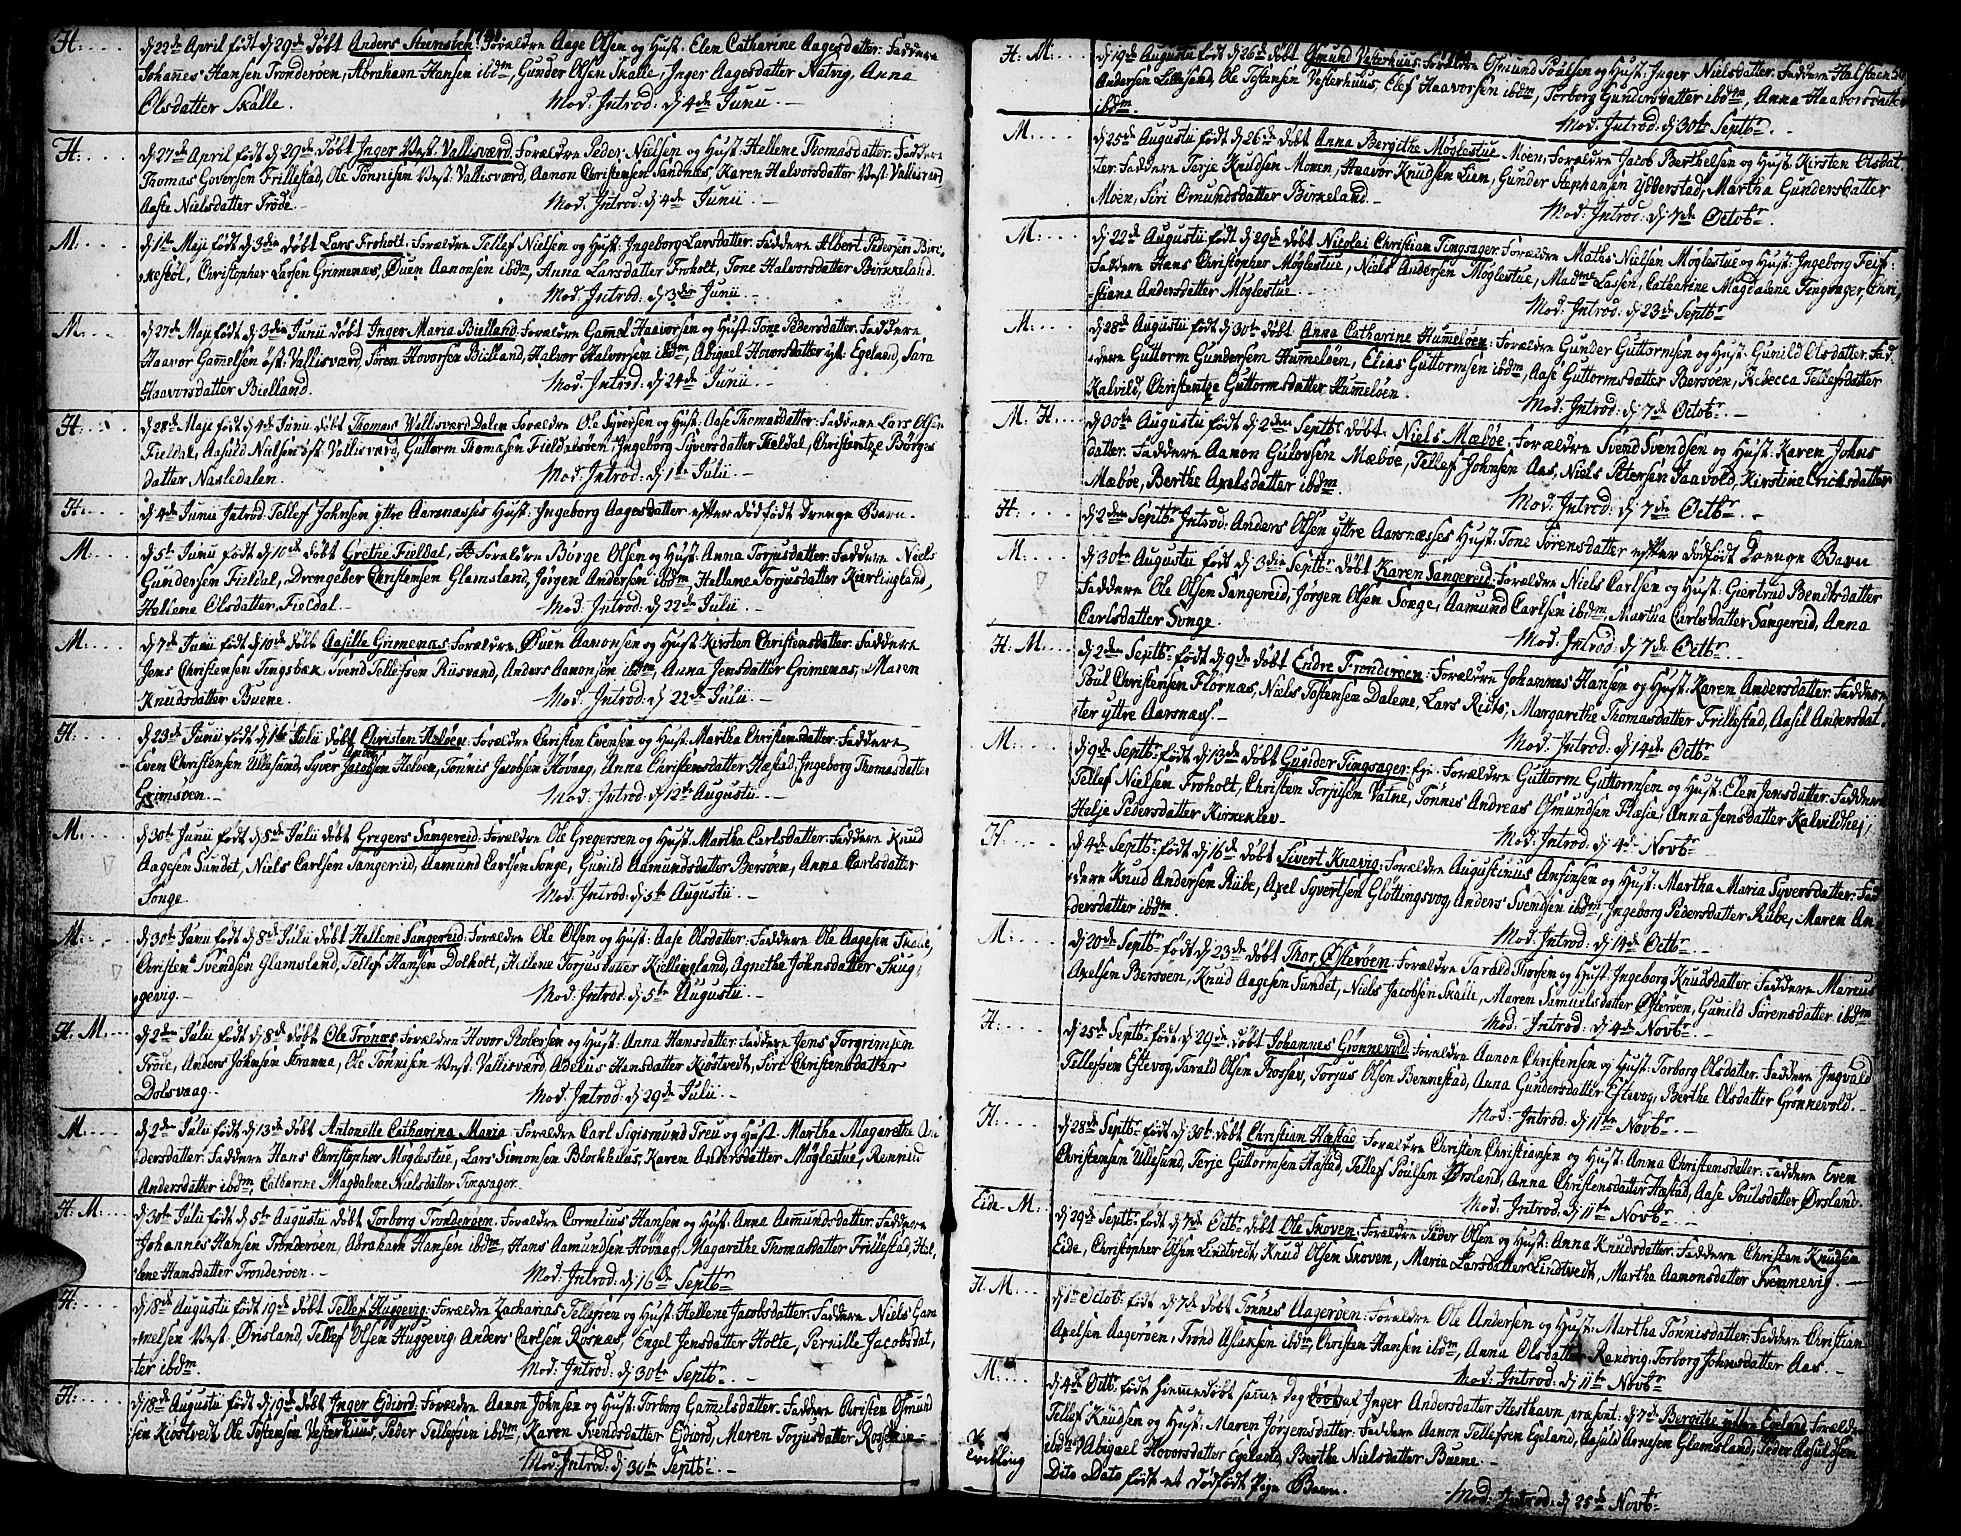 H: d 22de April født d 29de døbt Anders Steensøen: Forældre Aage Olsen og Hust: Elen Catharine Aagesdatter: Faddere
Johannes Hansen Tronderøen, Abraham Hansen ibdm, Gunder Olsen Skalle, Inger Aagesdatter Natvig, Anna
Olsdatter Skalle. Mod: Introd: d 4de Junii.
H: d 27de April født d 29de døbt Inger Vest: Vallisværd. Forældre Peder Nielsen og Hust: Hellene Thomasdatter. Faddere
Thomas Goversen Frillestad, Ole Tønnisen Vest: Vallisværd, Aanon Christensen Sandnæs, Karen Halvorsdatter Vest: Vallisværd,
Aaste Nielsdatter Trøde. Mod: Introd: d 4de Junii.
M: d 1ste Maji født d 3die døbt Lars Froholt. Forældre Tellef Nielsen og Hust: Ingeborg Larsdatter: Faddere Albert Pedersen Birc-
kesdøl, Christopher Larsen Grimenæs, Øuen Aanonsen ibdm, Anna Larsdatter Froholt, Tone Halvorsdatter Birkeland.
Mod: Introd: d 3die Junii.
M: d 27de Maji født d 3die Junii døbt Inger Maria Bielland. Forældre Gamel Haavorsen og Hust: Tone Pedersdatter. Faddere
Haavor Gamelsen øst: Vallisværd, Søren Hovorsen Bielland, Halvor Halvorsen ibdm, Abigael Hovorsdatter yt: Egeland, Sara
Haavorsdatter Bielland. Mod: Introd: d 24de Junii.
H: d 28de Maji født d 4de Junii døbt Thomas Vallisværd Dalen Forældre Ole Syversen og Hust: Aase Thomasdatter: Faddere Lars Olsen
Fieldal, Aasuld Nielsen øst: Vallisværd, Guttorm Thomasen Fieldalsøen, Ingeborg Syversdatter Fieldal, Christentze Børges
datter Nasledalen. Mod: Introd: d 1ste Julii.
H: d 4de Junii Introd: Tellef Johnsen yttre Aarsnæsses Hust: Ingeborg Aagesdatter efter dødfødt Drenge Barn.
M: d 5te Junii født d 10de døbt Grethe Fieldal, Forældre Børge Olsen og Hust: Anna Torjusdatter: Faddere Niels
Gundersen Fieldal, Drengeber Christensen Glamsland, Jørgen Andersen ibdm, Hellene Torjusdatter Kierlingland,
Hellene Olsdatter Fieldal. Mod: Introd: d 22de Julii.
M: d 7de Junii født d 10de døbt Aasille Grimenæs. Forældre Øuen Aanonsen og Hust: Kirsten Christensdatter: Faddere
Jens Christensen Tingsbæk, Svend Tellefsen Riisvand, Anders Aanonsen ibdm, Anna Jensdatter Grimenæs, Maren
Knudsdatter Buene. Mod: Introd: d 22de Julii.
H: d 23de Junii født d 1ste Julii døbt Christen Heløen. Forældre Christen Evensen og Hust: Martha Christensdatter: Faddere
Even Christensen Ullesund, Syver Jacobsen Heløen, Tønnis Jacobsen Hovaag, Anna Christensdatter Hæstad, Ingeborg Thomasdatter
Grimsven. Mod: Introd: d 12te Augustii.
M: d 30te Junii født d 5te Julii døbt Gregers Sangereid. Forældre Ole Gregersen og Hust: Martha Carlsdatter: Faddere Knud
Aagesen Sundet, Niels Carlsen Sangereid, Aamund Carlsen Songe, Gunild Aamundsdatter Bersøen, Anna Carlsdatter
Songe. Mod: Introd: d 5te Augustii.
M: d 30te Junii født d 8de Julii døbt Hellene Sangereid. Forældre Ole Olsen og Hust: Aase Olsdatter: Faddere Ole Aagesen Skalle,
Christen Svendsen Glamsland, Tellef Hansen Dolholt, Hellene Torjusdatter Kiellingland, Agnethe Johnsdatter Skug-
gevig. Mod: Introd: d 5te Augustii.
H: M: d 2den Julii født d 8de døbt Ole Trønæs. Forældre Hovor Robersen og Hust: Anna Hansdatter: Faddere Jens Torgrimsen
Trøde, Anders Johnsen Stranna, Ole Tønnisen Vest: Vallisværd, Adelus Hansdatter Kiøstvedt, Siri Christensdatter
Dolsvaag. Mod: Introd: d 29de Julii.
M: d 2den Julii født d 13de døbt Antonette Catharina Maria. Forældre Carl Sigismund Treu og Hust: Martha Magarethe An-
dersdatter: Faddere Hans Christopher Møglestue, Lars Simonsen Blockhuus, Karen Andersdatter Møglestue,
Andersdatter ibdm, Catharine Magdalene Nielsdatter Tingsager.
H: M: d 30te Julii født d 5te Augustii døbt Torborg Tronderøen. Forældre Cornelius Hansen og Hust: Anna Aamundsdatter: Faddere
Johannes Hansen Tronderøen, Abraham Hansen ibdm, Hans Aamundsen Hovaag, Magarethe Thomasdatter Frillestad, Hel-
lene Hansdatter Tronderøen. Mod: Introd: d 16de Septbr
H: d 18de Augustii født 19de døbt Tellef Huggevig: Forældre Zacharias Tellefsen og Hust: Hellene Jacobsdatter: Faddere Niels Gam
melsen Vest: Ørisland, Tellef Olsen Huggevig, Anders Carlsen Rosnæs, Engel Jensdatter Holte, Pernille Jacobsdat-
ter ibdm. Mod: Introd: d 30te Septbr.
H: d 18de Augustii født d 19de døbt Inger Ediord. Forældre Aanon Johnsen og Hust: Torborg Gamelsdatter. Faddere Christen Osmund
sen Kiøstvedt, Ole Tostensen Vesterhuus, Peder Tellefsen ibdm, Karen Svendsdatter Ediord, Maren Torjusdatter
Mod: Introd: d 30te Septbr.
H: M: d 19de Augustii født d 26de døbt Osmund Vesterhuus. Forældre Osmund Poulsen og Hust: Inger Nielsdatter. Faddere Halsteen
Andersen Lillesand, Ole Tostensen Vesterhuus, Elef Haavorsen ibdm, Torborg Gundersdatter ibdm, Anna Haavorsdatter
ibdm. Mod: Introd: d 30te Septbr.
M: d 25de Augustii født d 26de døbt Anna Bergithe Møglestue Moen. Forældre Jacob Berthelsen og Hust: Kirsten Olsdat-
ter: Faddere Terje Knudsen Moen, Haavor Knudsen Lien, Gunder Stephansen Ybberstad, Martha Gundersdatter
Moen, Siri Omundsdatter Birkeland. Mod: Introd: d 7de Octobr
M: d 22de Augustii født d 29de døbt Nicolai Christian Tingsager. Forældre Maths Nielsen Møglestue og Hust: Ingeborg
Faddere Hans Christopher Møglestue, Niels Andersen Møglestue, Madme Lassen, Catharine Magdalene Tingsager, Chri-
stiana Andersdatter Møglestue. Mod: Introd: d 23de Septbr
M: d 28de Augustii født d 30te døbt Anna Catharine Hummeløen: Forældre Gunder Guttormsen og Hust: Gunild Olsdatter. Fad-
dere Guttorm Gundersen Hummeløen, Elias Guttormsen ibdm, Aase Guttormsdatter Bersøen, Rebecca Tellefsdatter
Kalvild, Christentze Guttormsdatter Humeløen. Mod: Introd: d 7de Octobr
M: H: d 30te Augustii født d 2den Septbr døbt Niels Mæbøe: Forældre Svend Svendsen og Hust: Karen Johns
datter. Faddere Aanon Gulovsen Mæbøe, Tellef Johnsen Aas, Niels Petersen Saavold, Kirstine Erichsdatter
Mæbøe, Berthe Axelsdatter ibdm. Mod: Introd: d 7de Octbr.
H: d 2den Septbr Introd: Anders Olsen yttre Aarsnæsses Hust: Tone Sørensdatter efter dødfødt Drenge Barn
M: d 30te Augustii født d 3die Septbr døbt Karen Sangereid: Forældre Niels Carlsen og Hust: Giertrud Bendtsdatter
Faddere Ole Olsen Sangereid, Jørgen Olsen Songe, Aamund Carlsen ibdm, Martha Carlsdatter Sangereid, Anna
Carlsdatter Songe. Mod: Introd: d 7de Octbr.
H: M: d 2den Septbr født d 9de døbt Endre Tronderøen: Forældre Johannes Hansen og Hust: Karen Andersdatter. Faddere
Poul Christensen Flørnæs, Niels Tostensen Dalene, Lars Riits, Margarethe Thomasdatter Frillestad, Aasel Andersdat
ter yttre Aarsnæs. Mod: Introd: d 14de Octbr
M: d 9de Septbr født d 13de døbt Gunder Tingsager: Eje. Forældre Guttorm Guttormsen og Hust: Elen Jensdatter. Faddere
Tellef Nielsen Froholt, Christen Torjusen Vatne, Tønnes Andreas Osmundsen Flæsie, Anna Jensdatter Kalvildhei,
Helje Pedersdatter Kirkeklev. Mod: Introd: d 4de Novbr
H: d 4de Septbr født d 16de døbt Sivert Knavig: Forældre Augustinius Ansinsen og Hust: Martha Maria Syversdatter. Fad
dere Knud Andersen Kube, Axel Syvertsen Gløttingsvog, Anders Svendsen ibdm, Ingeborg Pedersdatter Kube, Maren An-
dersdatter ibdm. Mod: Introd: d 14de Octbr
M: d 20de Septbr født d 23de døbt Thor Østerøen. Forældre Tarald Thorsen og Hust: Ingeborg Knudsdatter: Faddere Marcus
Axelsen Bersøen, Knud Aagesen Sundet, Niels Jacobsen Skalle, Maren Samuelsdatter Østerøen, Gunild Sørensdatter ibdm
Mod: Introd: d 4de Novbr
H: d 25de Septbr født d 29de døbt Johannes Grønnevold. Forældre Aanon Christensen og Hust: Torborg Olsdatter. Faddere Ingvald
Tellefsen Eftevog, Tarald Olsen Rossav, Torjus Olsen Bennestad, Anna Gundersdatter Eftevog, Berthe Olsdatter Grønnevold.
Mod: Introd: d 11te Novbr
H: d 28de Septbr født d 30te døbt Christian Hæstad. Forældre Christen Christiansen og Hust: Anna Christensdatter: Faddere Even
Christensen Ullesund, Terje Guttormsen Hæstad, Tellef Poulsen Ørsland, Anna Christensdatter Hæstad, Aase Poulsdatter Ørsland.
Mod: Introd: d 11te Novbr
Eide M: d 29de Septbr født d 7de Octbr døbt Ole Skoven: Forældre Peder Olsen og Hust: Anna Knudsdatter: Faddere Christen Knudsen
Eide, Christopher Olsen Lindtvedt, Knud Olsen Skoven, Maria Larsdatter Lindtvedt, Martha Aamonsdatter Svennevig.
H: M: d 1ste Octobr født d 7de døbt Tønnes Aagerøen: Forældre Ole Andersen og Hust: Martha Tønnisdatter: Faddere Christian
Axelsen Aagerøen, Trond Aslaksen ibdm, Christen Hansen ibdm, Anna Olsdatter Randvig, Torborg Johnsdatter Aas
Mod: Introd: d 11te Novbr
M: d 4de Octbr født hiemmedøbt samme Dag af Inger Andersdatter Hesthavn, præsent: d 7de Bergithe yttre Egeland Forældre
Tellef Knudsen og Hust: Maren Jørgensdatter: Faddere Aanon Tellefsen Egeland, Aasuld Arnesen Glamsland, Peder Aasuldsen
ibdm, Abigael Hovorsdatter Egeland, Berthe Nielsdatter Buene.
Tvilling Dito Dato født et dødfødt Pige Barn. Mod: Introd: d 25de Novbr